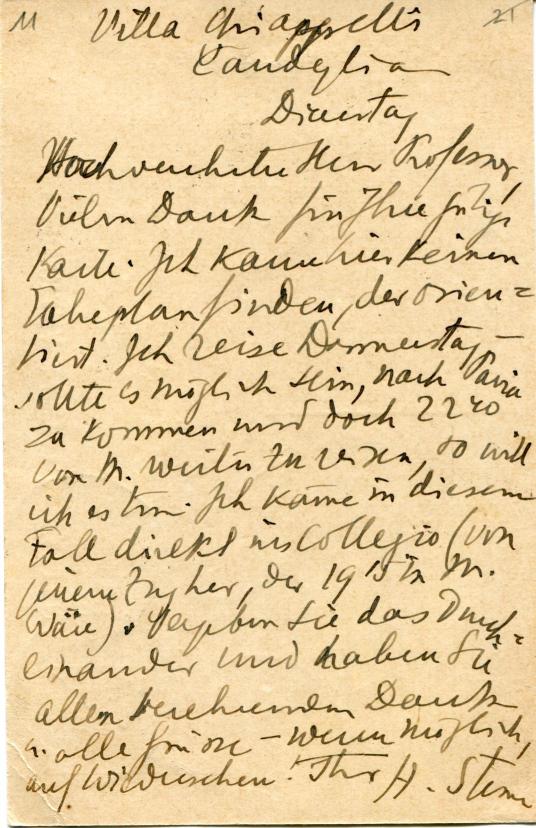 11 21
Villa Chiappelli
Candeglia
Dienstag
Hochverehrter Herr Professor,
Vielen Dank für Ihre gütige
Karte. Ich kann hier keinen
Fahrplan finden, der orien=
tiert. Ich reise Donnerstag –
sollte es möglich sein, nach Pavia
zu kommen und doch 22 40
von M. weiter zu reisen, so will
ich es tun. Ich käme in diesem
Fall direkt ins Collegio (von
jenem Zug her, der 19 15 in M.
wäre). Vergeben Sie das Durch=
einander und haben Sie
allen verehrenden Dank
u. alle Grüsse – wenn möglich,
auf Wiedersehen! Ihr H.